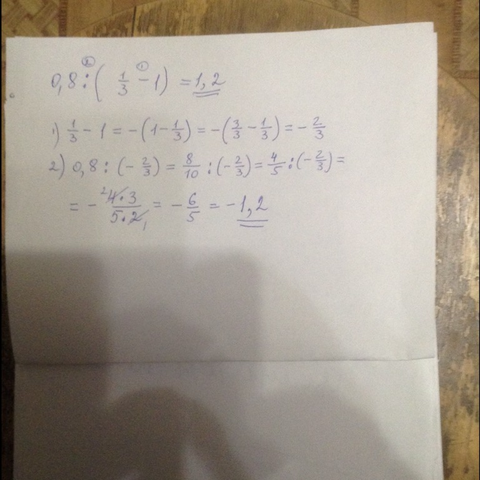 ② ①
0,8 : ( 1/3 - 1 ) = 1,2
1) 1/3 - 1 = -(1 - 1/3) = -(3/3 - 1/3) = - 2/3
2) 0,8 : (- 2/3) = 8/10 : (- 2/3) = 4/5 : (- 2/3) =
= - ²4·3/5·2₁ = - 6/5 = -1,2